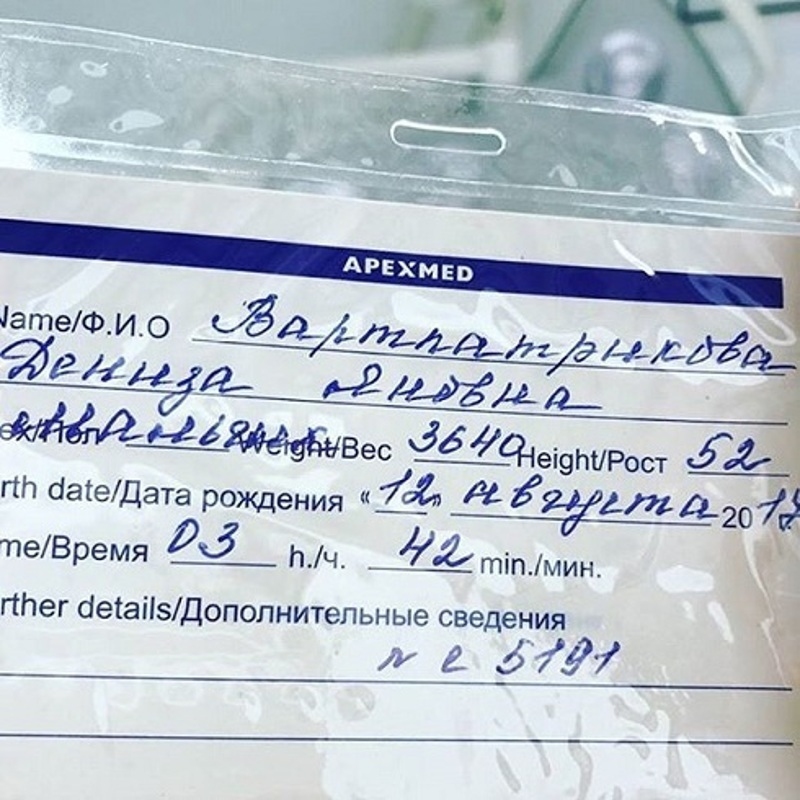 APEXMED
Name/Ф.И.О Вартпатрикова
Дениза Яновна
ex/Пол Weight/Вес 3640 Height/Рост 52
rth date/Дата рождения «12» августа 2017
me/Время 03 h./ч. 42 min./мин.
rther details/Дополнительные сведения
5191